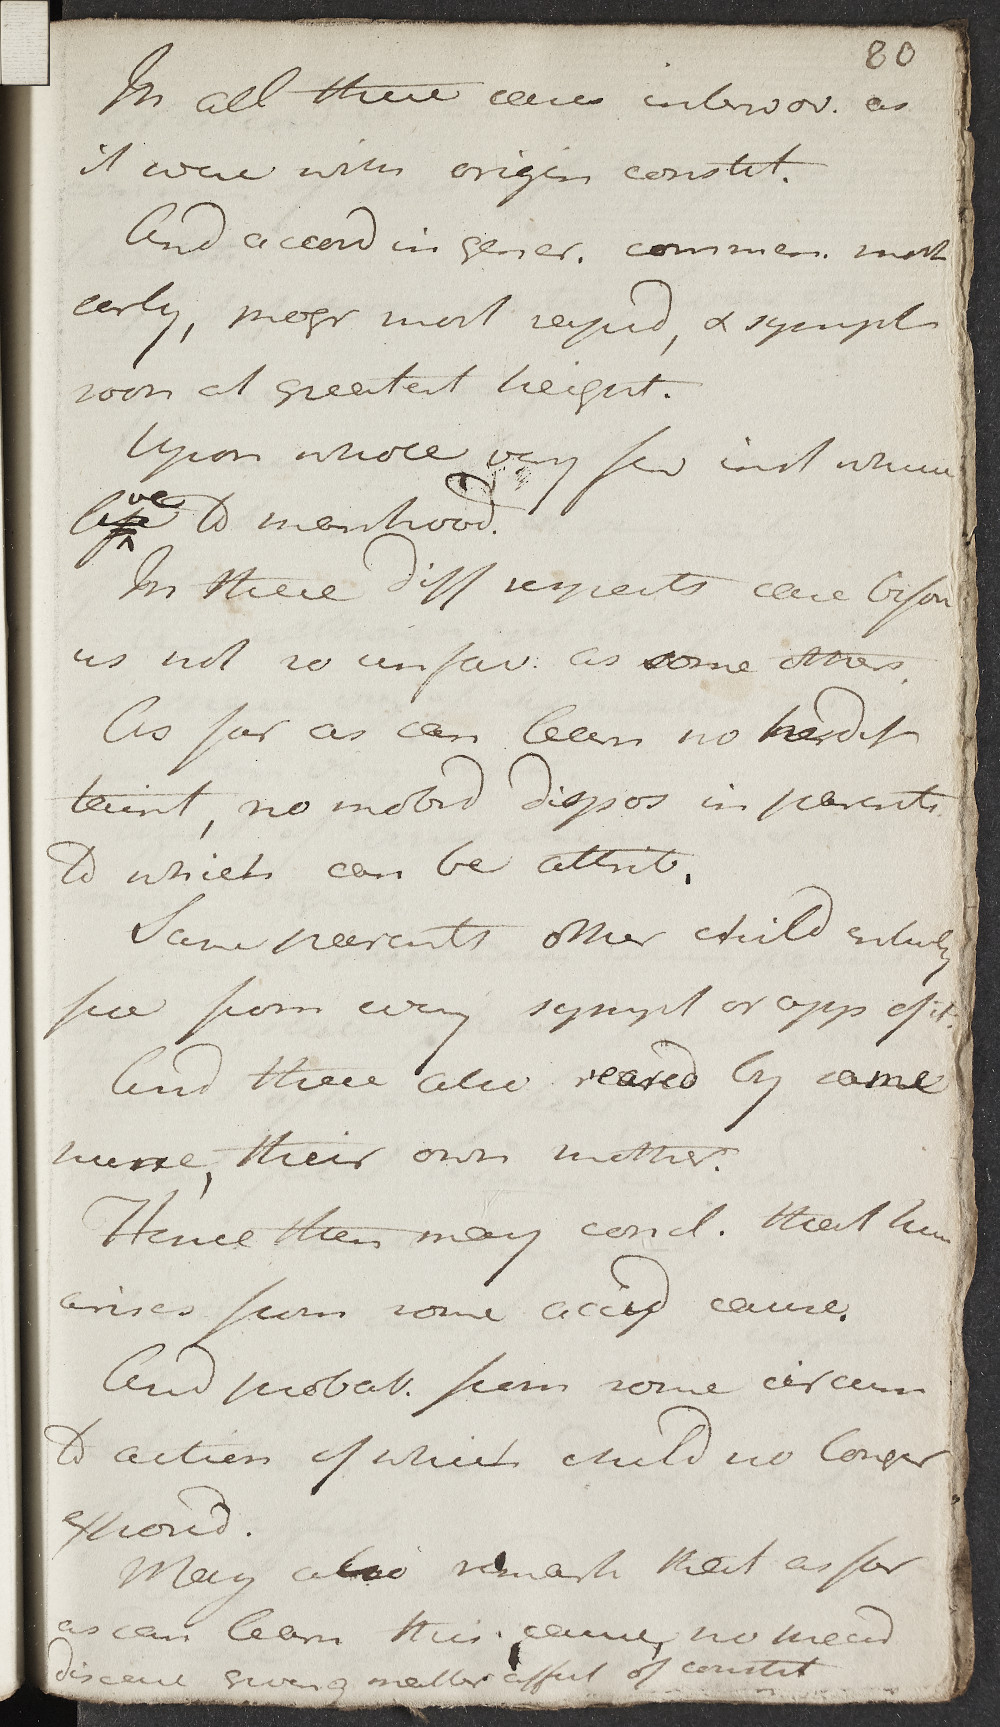 80
In all these cases interwov. as
it were with origin constit.
And accord in gener. commen. most
early, progr most rapid, & sympt
soon at greatest height.
Upon whole very few inst where
live to manhood.
In these diff respects case befor
us not so unfav. as some others.
As far as can learn no heredit
taint, no morbd dispos in parents
to which can be attrib.
Same parents other child entirely
free from every sympt or app of it.
And these also reared by same
nurse, their own mother.
Hence then may concl. that here
arises from some accid cause.
And probab. from some circum
to action of which child no longer
exposd.
May also remark that as far
as can learn this cause, no
disease giving matter of constit